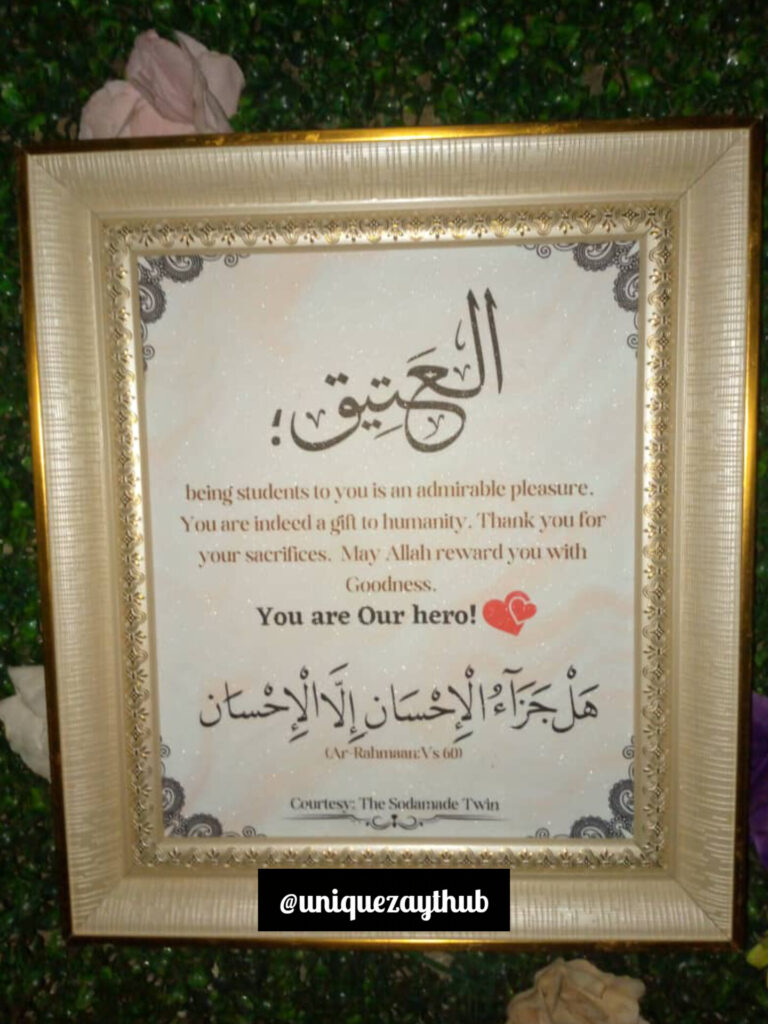 العَتِيق؛
being students to you is an admirable pleasure.
You are indeed a gift to humanity. Thank you for
your sacrifices. May Allah reward you with
Goodness.
You are Our hero!
هَلْ جَزَآءُ الْإِحْسَانِ إِلَّا الْإِحْسَان
(Ar-Rahmaan:Vs 60)
Courtesy: The Sodamade Twin
@uniquezaythub